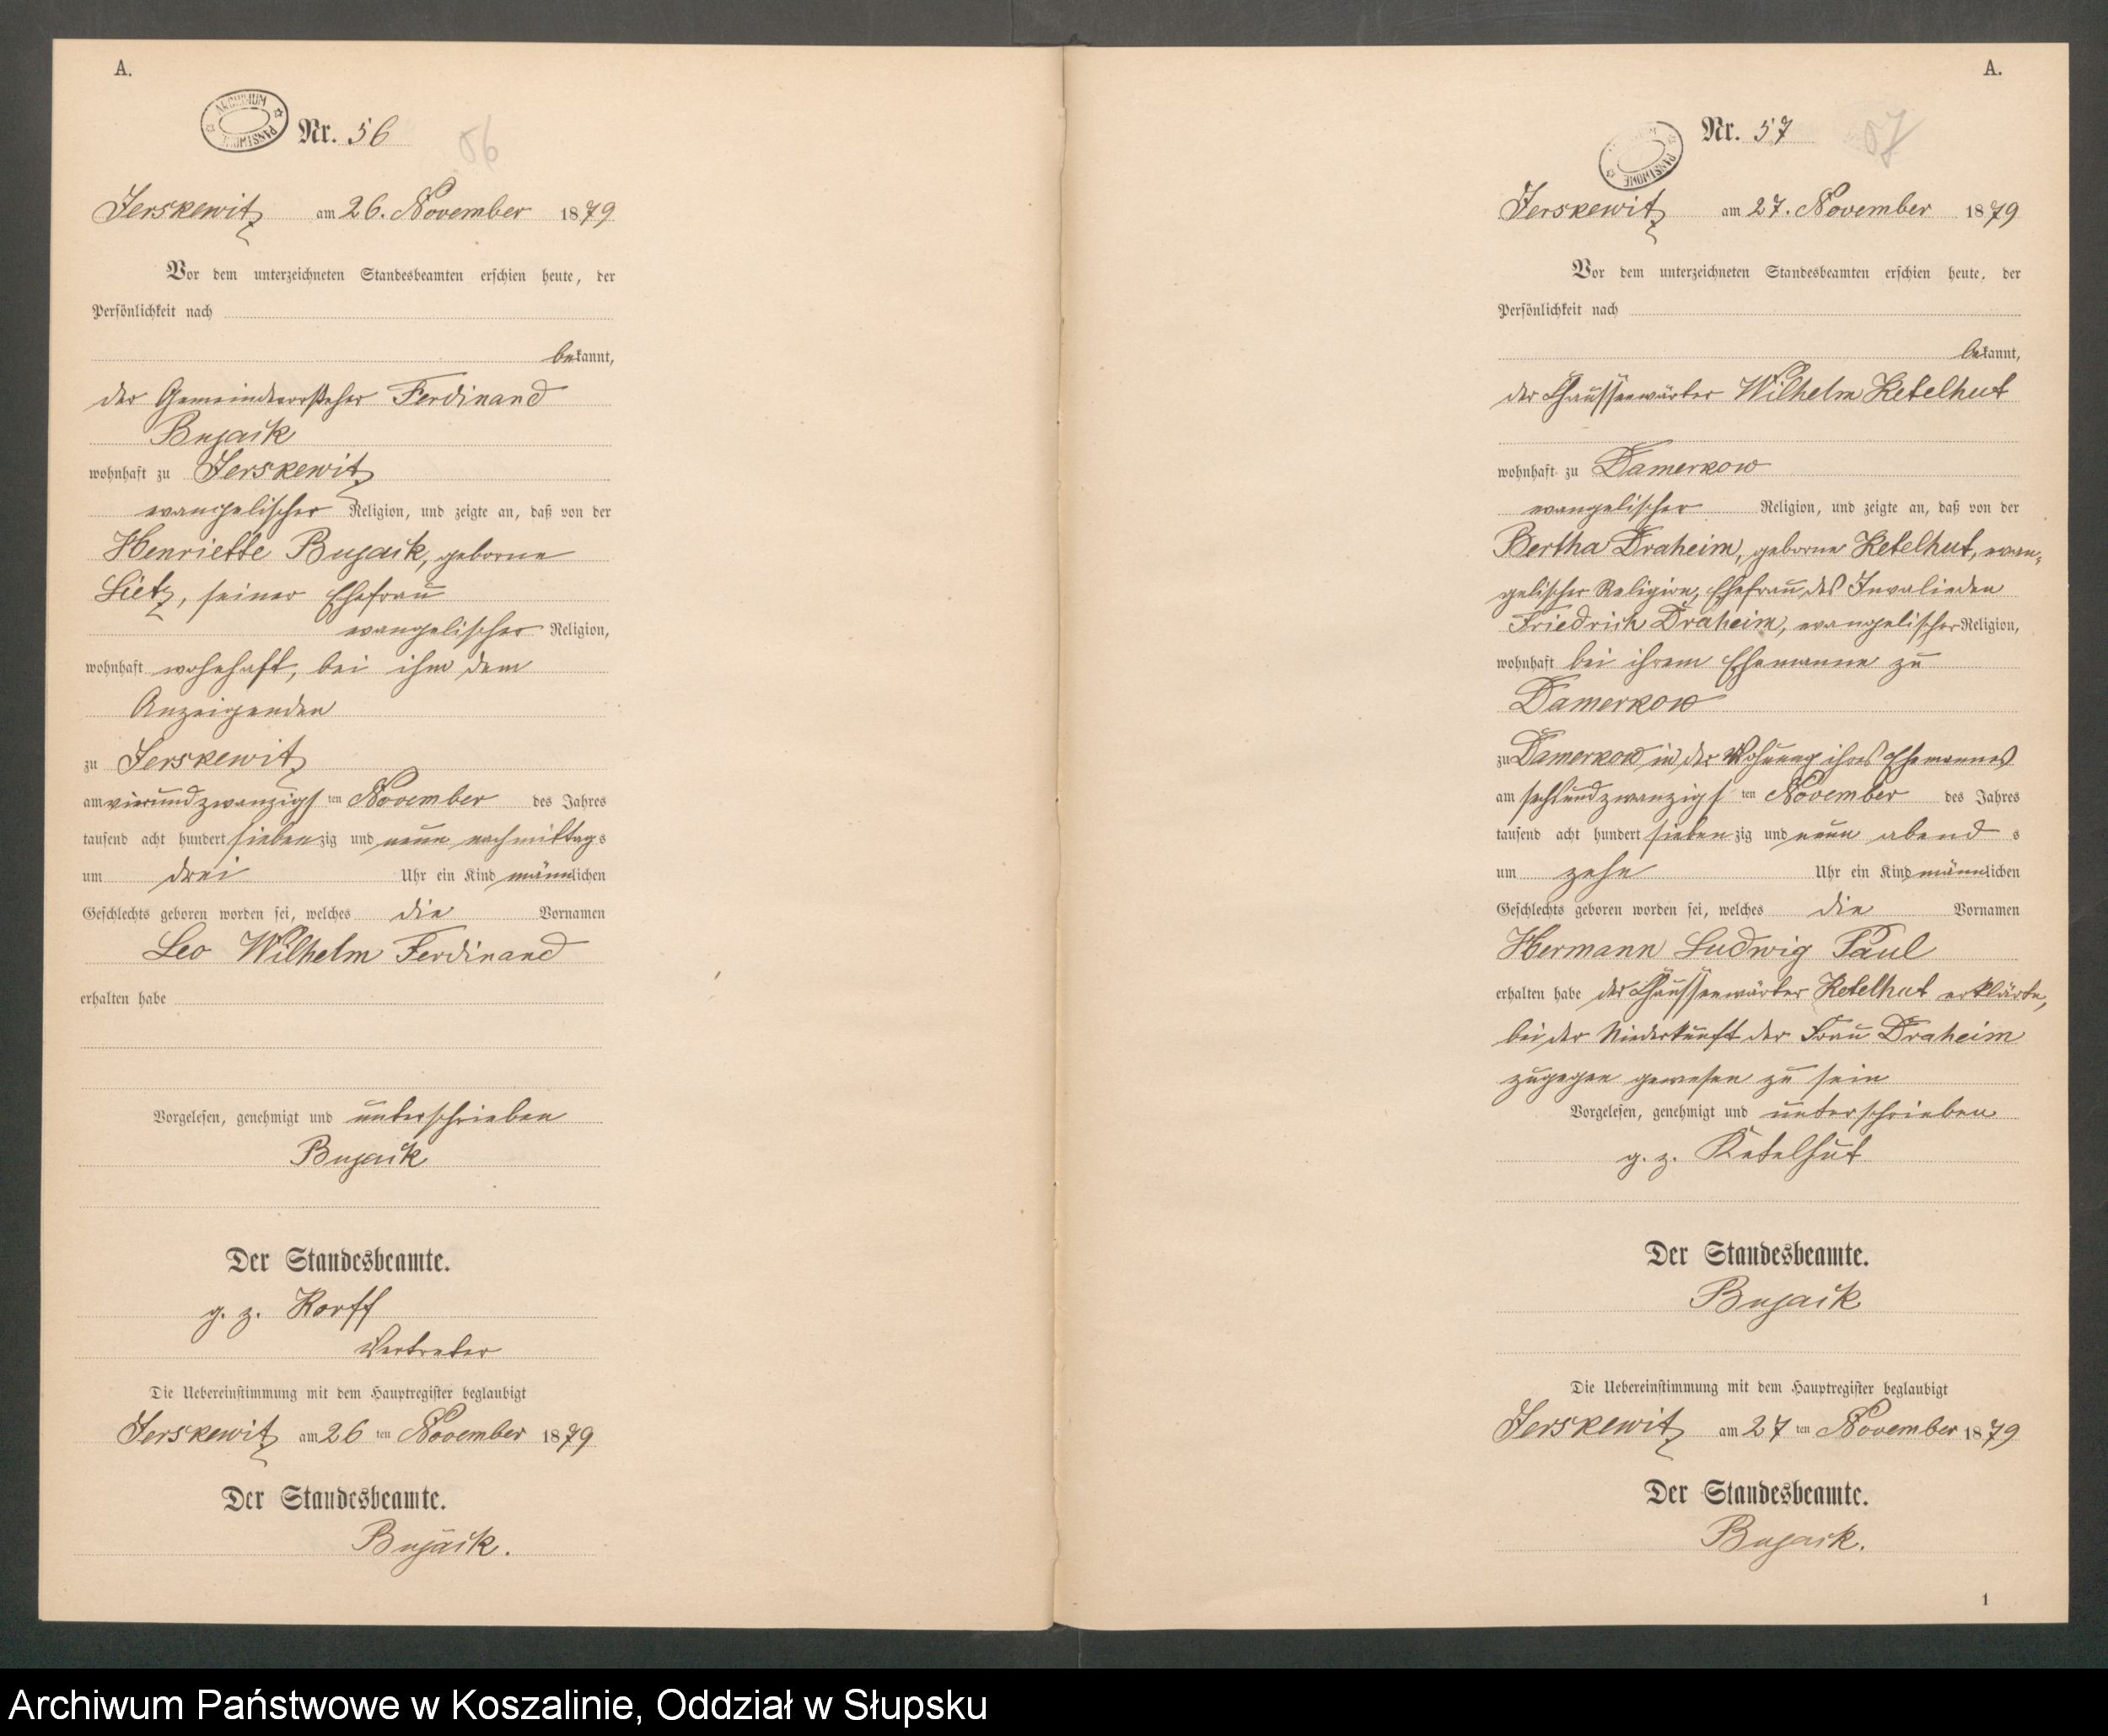 A.
ARCHIWUM PAŃSTWOWE
Nr. 56
56
Jerskewitz am 26. November 1879
Vor dem unterzeichneten Standesbeamten erschien heute, der
Persönlichkeit nach
bekannt,
der Gemeindevorsteher Ferdinand
Bujack
wohnhaft zu Jerskewitz
evangelischer Religion, und zeigte an, daß von der
Henriette Bujack, geborne
Lietz, seiner Ehefrau
evangelischer Religion,
wohnhaft wohnhaft, bei ihm dem
Anzeigenden
zu Jerskewitz
am vierundzwanzigsten November des Jahres
tausend acht hundert siebenzig und neun nachmittags
um drei Uhr ein Kind männlichen
Geschlechts geboren worden sei, welches die Vornamen
Leo Wilhelm Ferdinand
erhalten habe
Vorgelesen, genehmigt und unterschrieben
Bujack
Der Standesbeamte.
g. z. Korff
Vertreter
Die Uebereinstimmung mit dem Hauptregister beglaubigt
Jerskewitz am 26 ten November 1879
Der Standesbeamte.
Bujack.
A.
Nr. 57
57
Jerskewitz am 27. November 1879
Vor dem unterzeichneten Standesbeamten erschien heute, der
Persönlichkeit nach
bekannt,
der Chausseewärter Wilhelm Ketelhut
wohnhaft zu Damerkow
evangelischer Religion, und zeigte an, daß von der
Bertha Draheim, geborne Ketelhut, evan-
gelischer Religion, Ehefrau des Invaliden
Friedrich Draheim, evangelischer Religion,
wohnhaft bei ihrem Ehemanne zu
Damerkow
zu Damerkow in der Wohnung ihres Ehemannes
am sechsundzwanzigsten November des Jahres
tausend acht hundert siebenzig und neun abends
um zehn Uhr ein Kind männlichen
Geschlechts geboren worden sei, welches die Vornamen
Hermann Ludwig Paul
erhalten habe der Chausseewärter Ketelhut erklärte,
bei der Niederkunft der Frau Draheim
zugegen gewesen zu sein
Vorgelesen, genehmigt und unterschrieben
g. z. Ketelhut
Der Standesbeamte.
Bujack
Die Uebereinstimmung mit dem Hauptregister beglaubigt
Jerskewitz am 27 ten November 1879
Der Standesbeamte.
Bujack.
1
Archiwum Państwowe w Koszalinie, Oddział w Słupsku